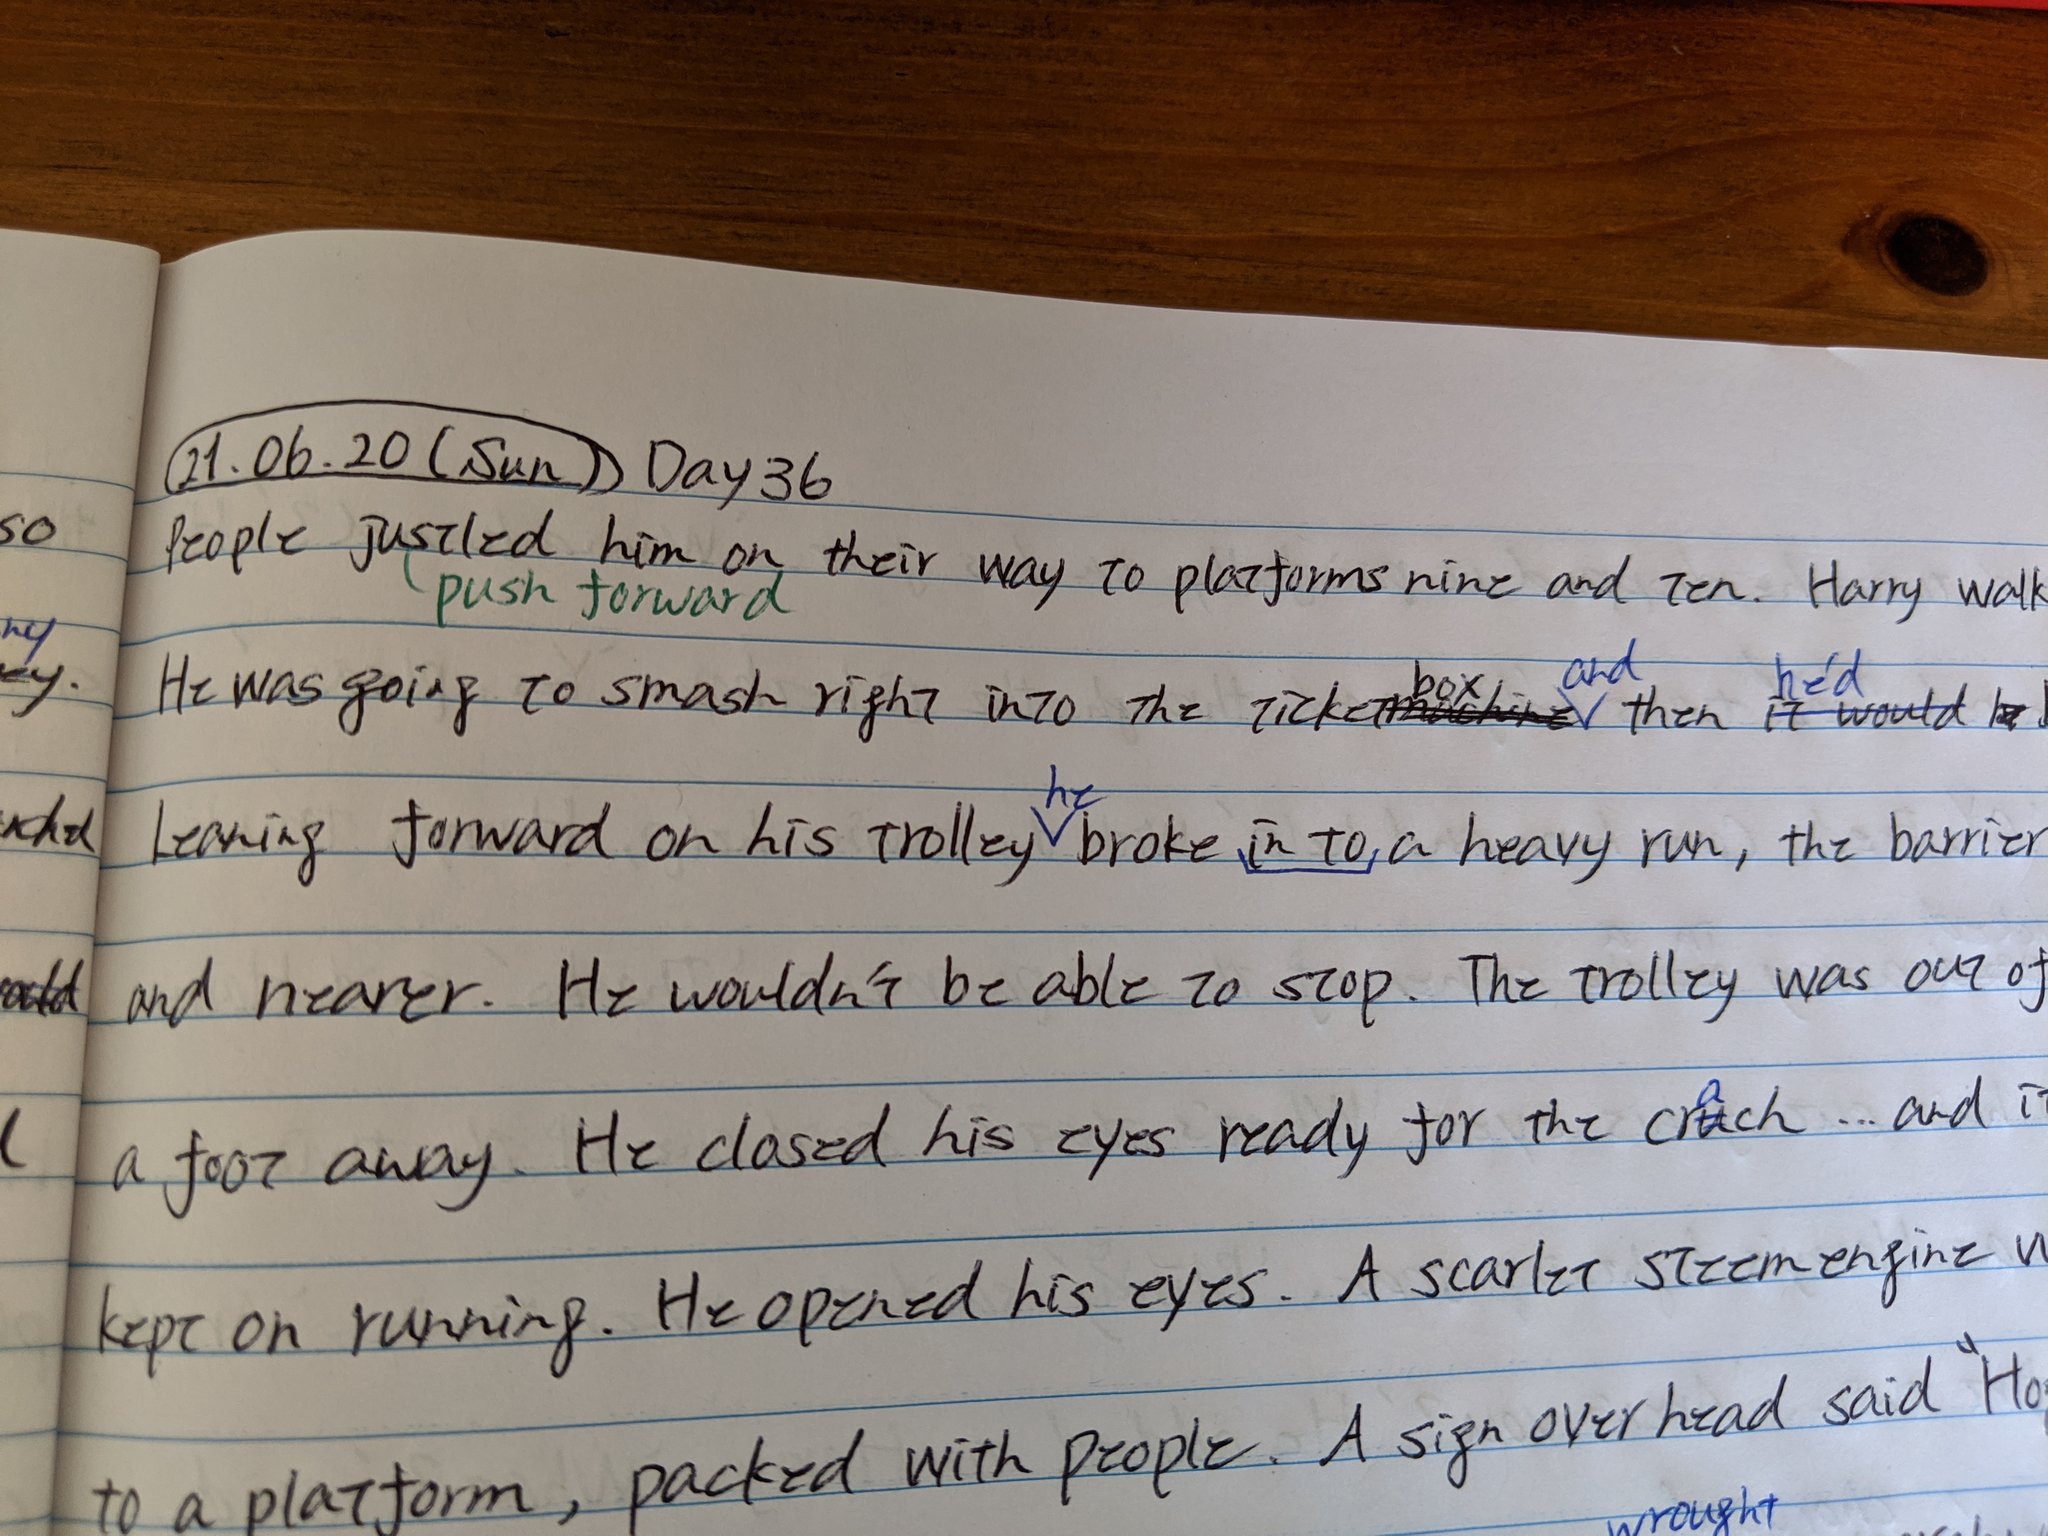 21.06.20 (Sun) Day 36
so
People justled him on their way to platforms nine and ten. Harry walk
push forward
He was going to smash right into the ticket box and then he'd
he
Leaning forward on his trolley broke in to a heavy run, the barrier
and nearer. He wouldn't be able to stop. The trolley was out of
a foot away. He closed his eyes ready for the crach ... and it
kept on running. He opened his eyes. A scarlet steem engine w
to a platform, packed with people. A sign over head said "Ho
wrought